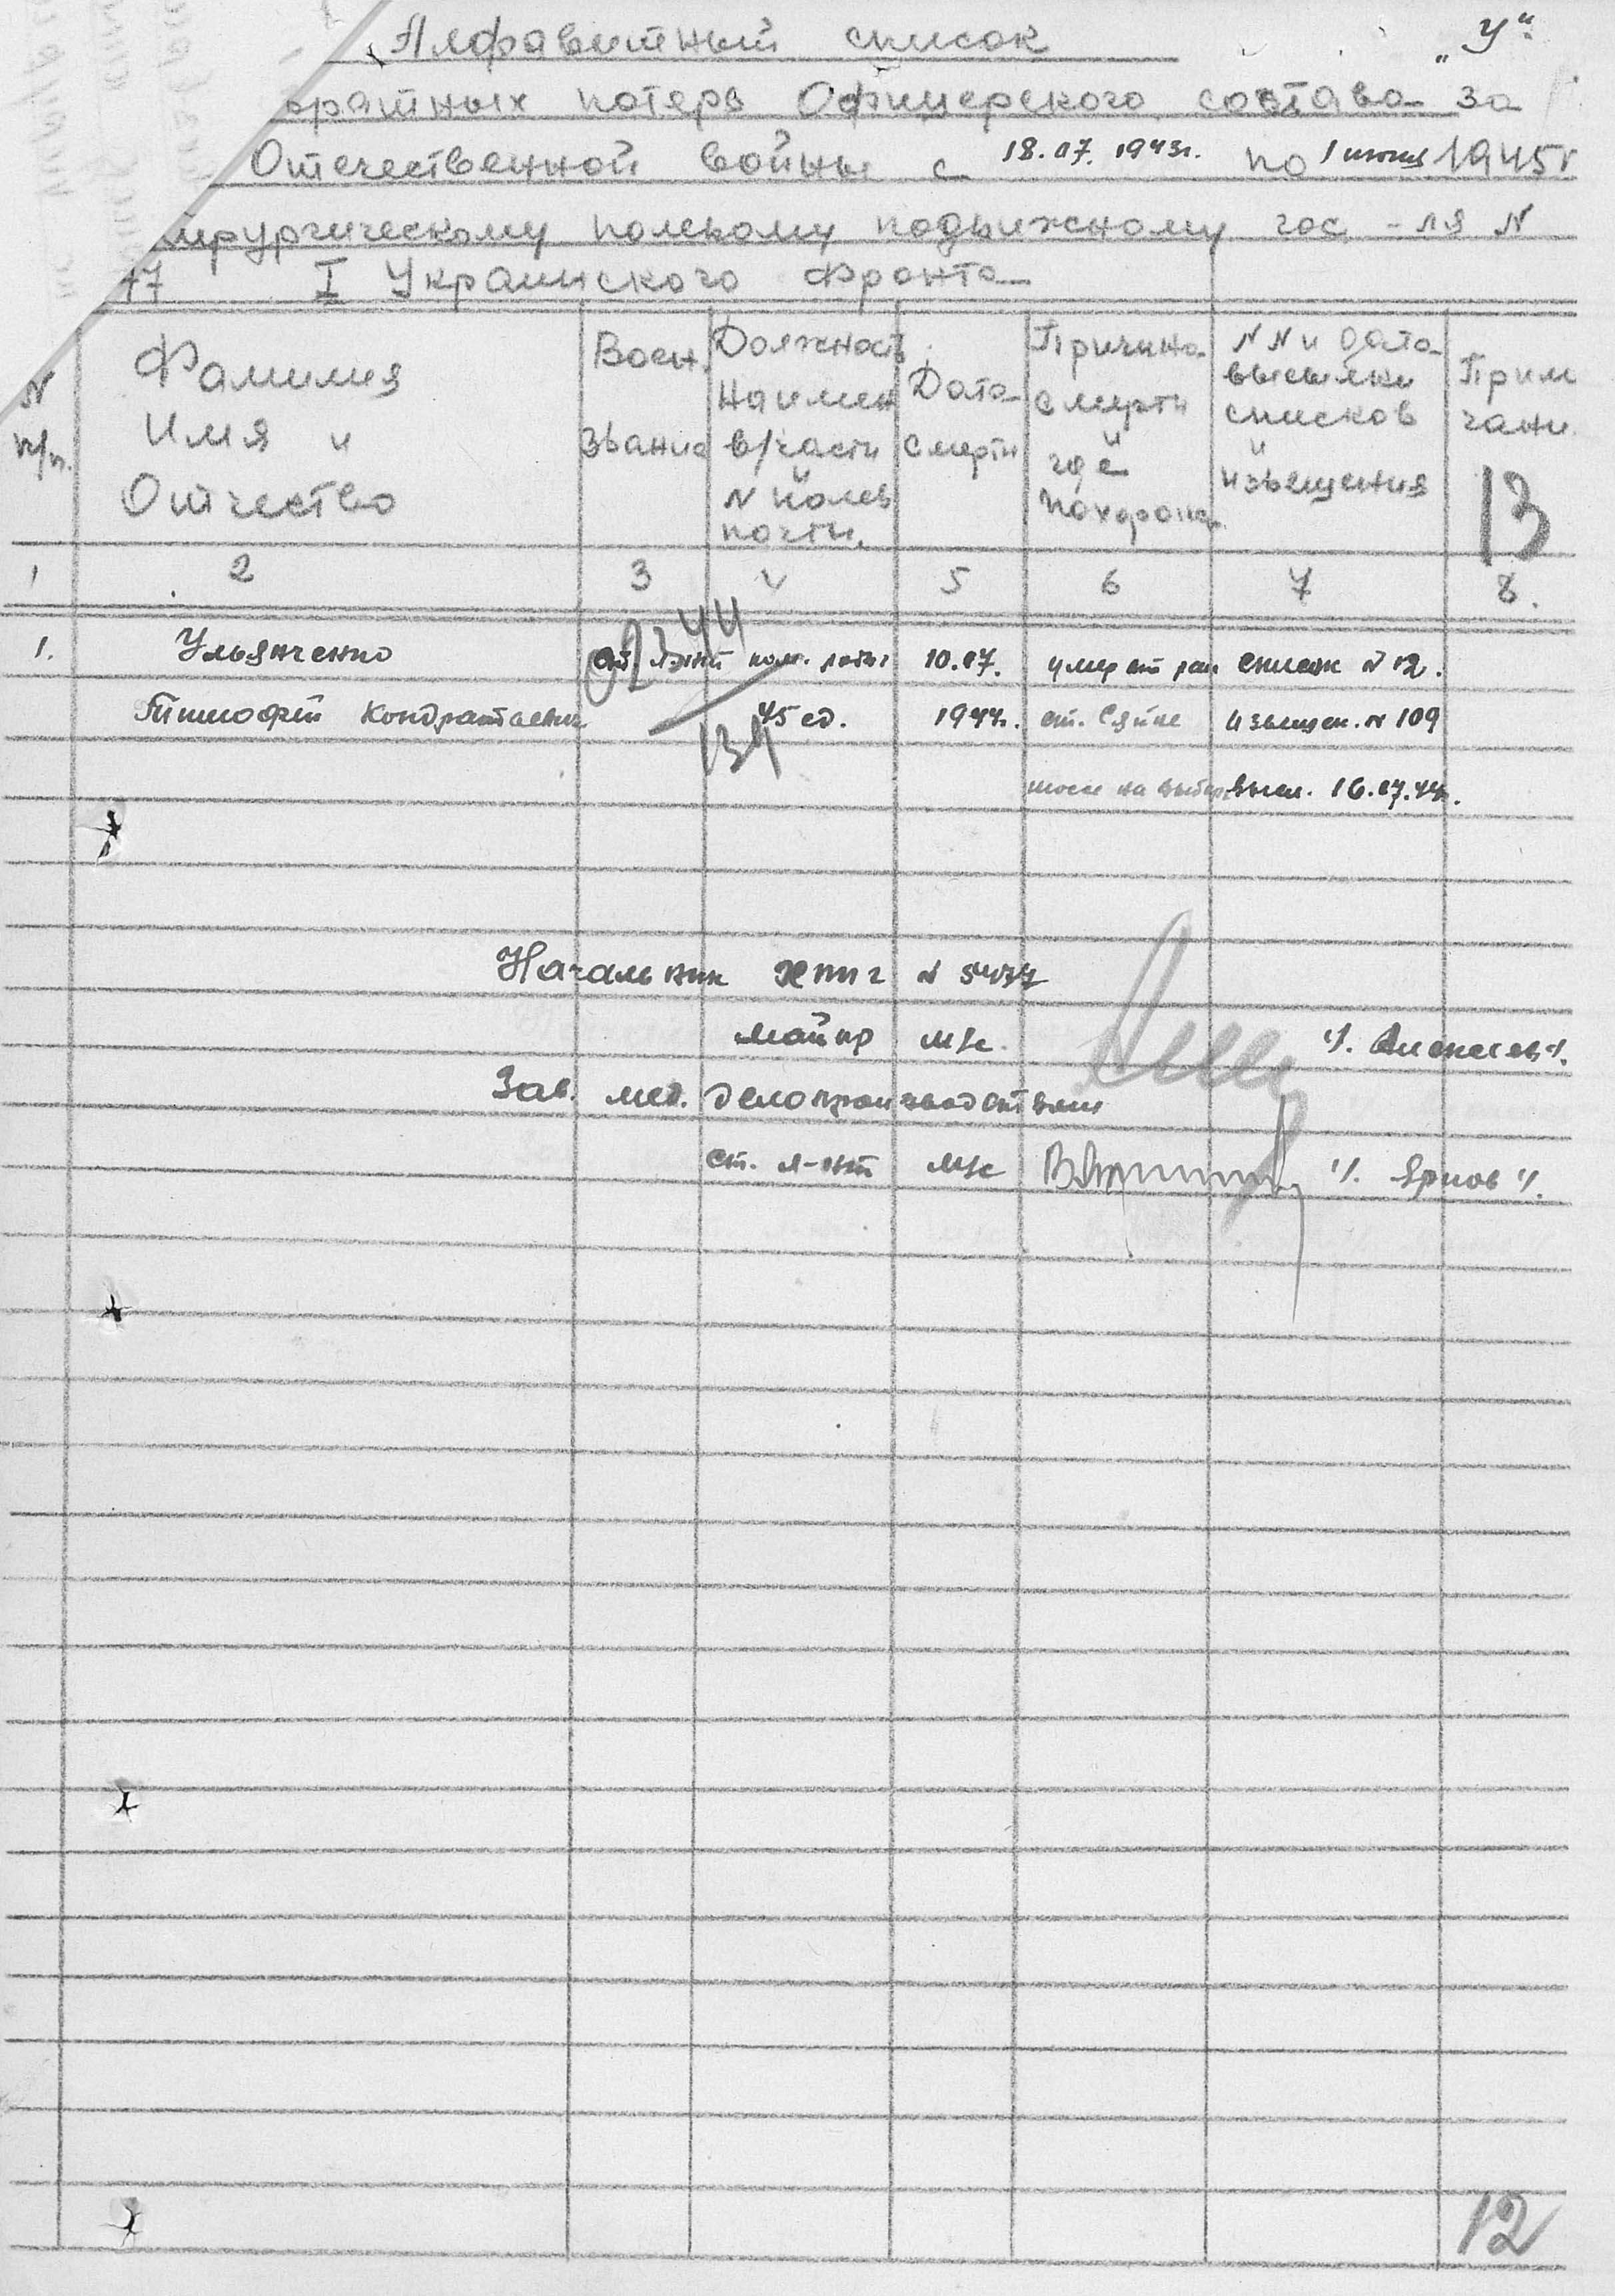 Алфавитный список „У“
оратных потерь Офицерского состава за
Отечественной войны с 18.07.1943г. по 1 июня 1945г
ирургическому полевому подвижному гос-ля N
77 I Украинского Фронта
N п/п.
Фамилия Имя и Отчество
Воен. Звание
Должность Наимен в/части N полев почты.
Дата Смерти
Причина Смерти и где похорон.
N N и дата высылки списков и извещения
Прим чани.
13
1 2 3 4 5 6 7 8.
1. Ульянченко ст. л-нт ком. роты 10.07. умер от ран список N 12.
Тимофей Кондратьевич 45 сд. 1944г. ст. извещен. N 109
на высл. 16.07.44г.
Начальник ХППГ N 5477
майор м/с /. Алексеев /.
Зав. мед. делопроизводством
ст. л-нт м/с /. Ярков /.
12